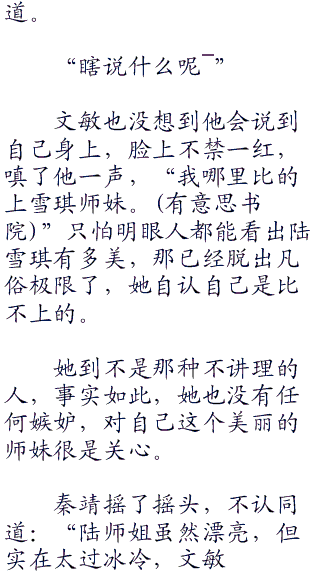 道。
“瞎说什么呢¯”
文敏也没想到他会说到
自己身上，脸上不禁一红，
嗔了他一声，“我哪里比的
上雪琪师妹。(有意思书
院)”只怕明眼人都能看出陆
雪琪有多美，那已经脱出凡
俗极限了，她自认自己是比
不上的。
她到不是那种不讲理的
人，事实如此，她也没有任
何嫉妒，对自己这个美丽的
师妹很是关心。
秦靖摇了摇头，不认同
道：“陆师姐虽然漂亮，但
实在太过冰冷，文敏